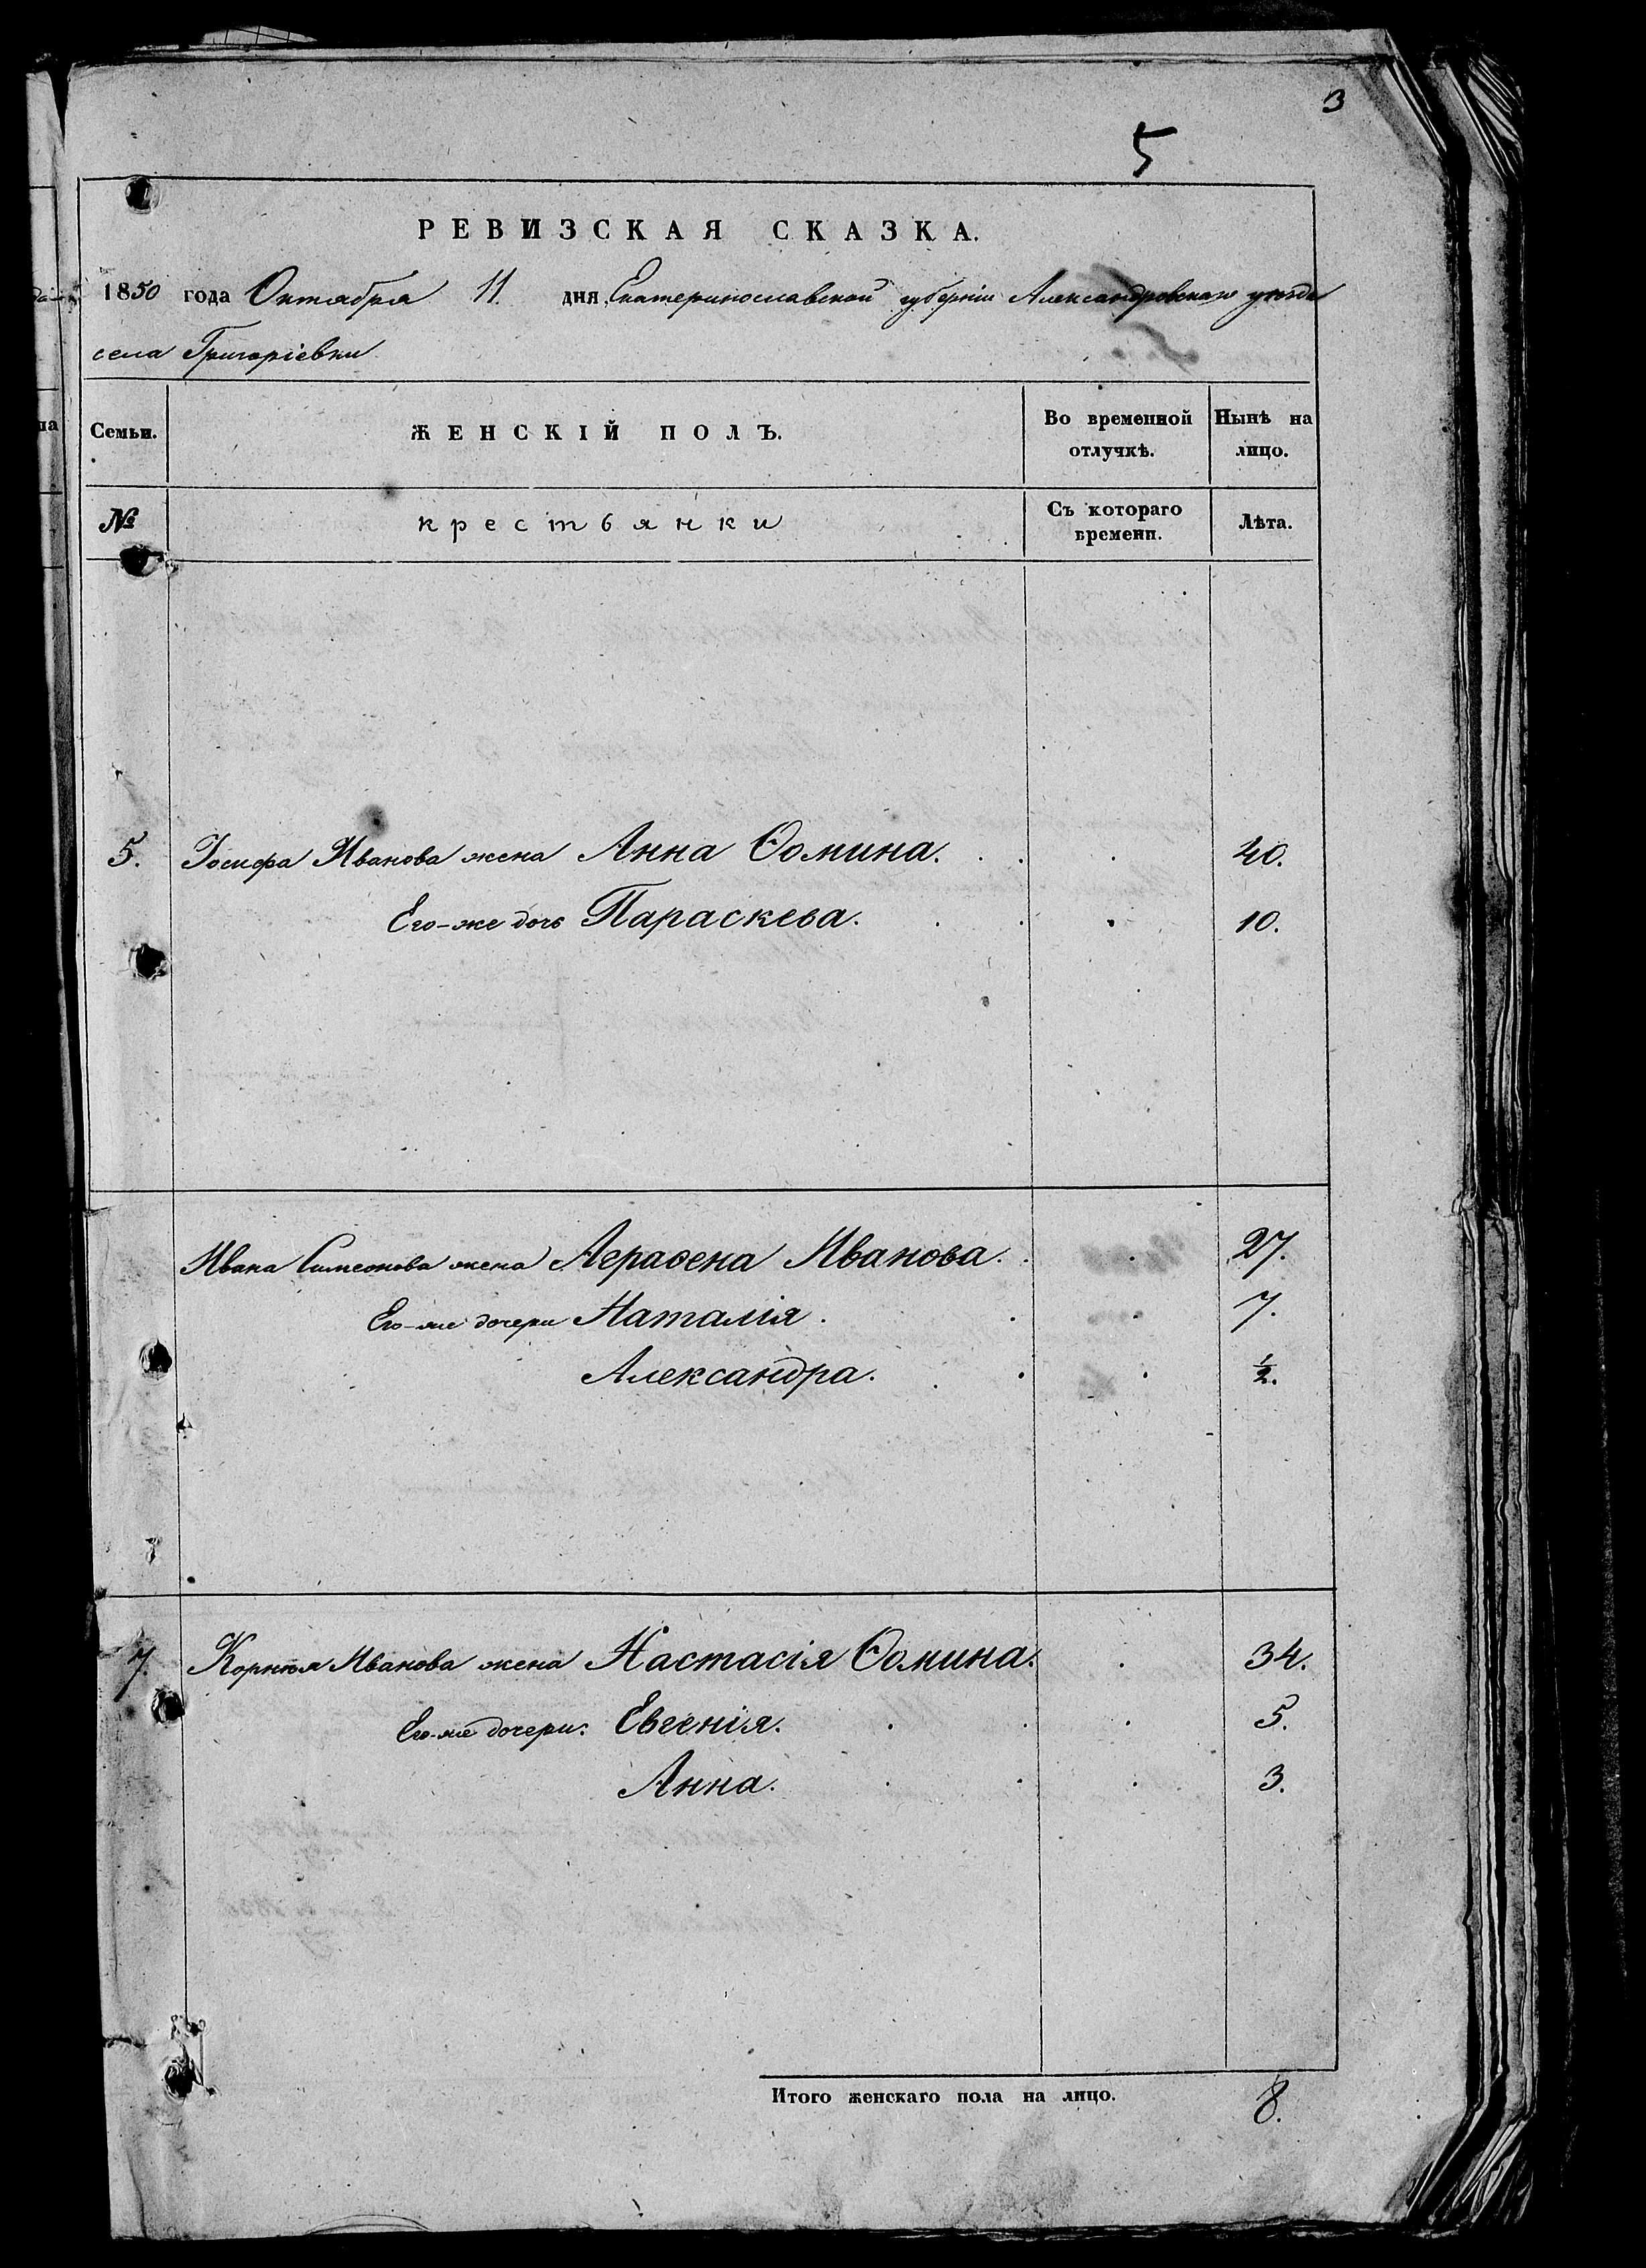 3
5
РЕВИЗСКАЯ СКАЗКА.
1850 года Октября 11. дня Екатеринославской губерніи Александровскаго уезда
села Григоріевки
Семьи. ЖЕНСКІЙ ПОЛЪ. Во временной отлучкѣ. Нынѣ на лицо.
№ крестьянки Съ котораго времени. Лѣта.
5. Іосифа Иванова жена Анна Ѳомина. 40.
Его-же дочь Параскева. 10.
Ивана Симеонова жена Аграфена Иванова. 27.
Его-же дочери Наталія. 7.
Александра. ½.
7. Корнея Иванова жена Настасія Ѳомина. 34.
Его-же дочери: Евгенія. 5.
Анна. 3.
Итого женскаго пола на лицо. 8.